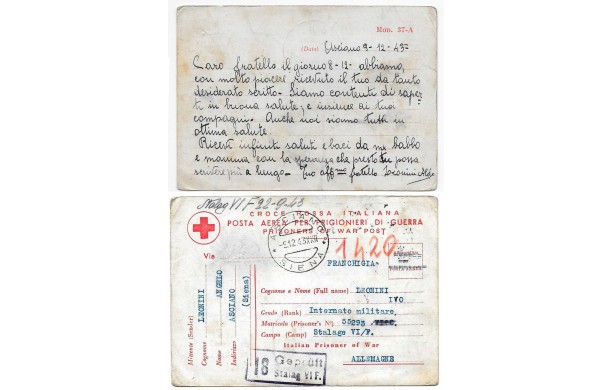 Mod. 37-A
(Data) Asciano 9-12-43
Caro fratello il giorno 8-12- abbiamo,
con molto piacere ricevuto il tuo da tanto
desiderato scritto. Siamo contenti di saper
ti in buona salute; e insieme ai tuoi
compagni. Anche noi siamo tutti in
ottima salute.
Ricevi infiniti saluti e baci da me babbo
e mamma con la speranza che presto tu possa
scrivere più a lungo. Tuo aff.mo fratello Leonini
Stalag VI F 22-9-43
CROCE ROSSA ITALIANA
POSTA AEREA PER PRIGIONIERI DI GUERRA
PRISONERS OF WAR POST
1420
Via
ASCIANO
SIENA
FRANCHIGIA
Mittente (Sender)
Cognome LEONINI
Nome ANGELO
Indirizzo ASCIANO
(Siena)
Cognome e Nome (Full name) LEONINI
IVO
Grado (Rank) Internato militare
Matricola (Prisoner's N°) 55293
Campo (Camp) Stalage VI/F.
Italian Prisoner of War
ALLEMAGNE
18 Geprüft
Stalag VI F.